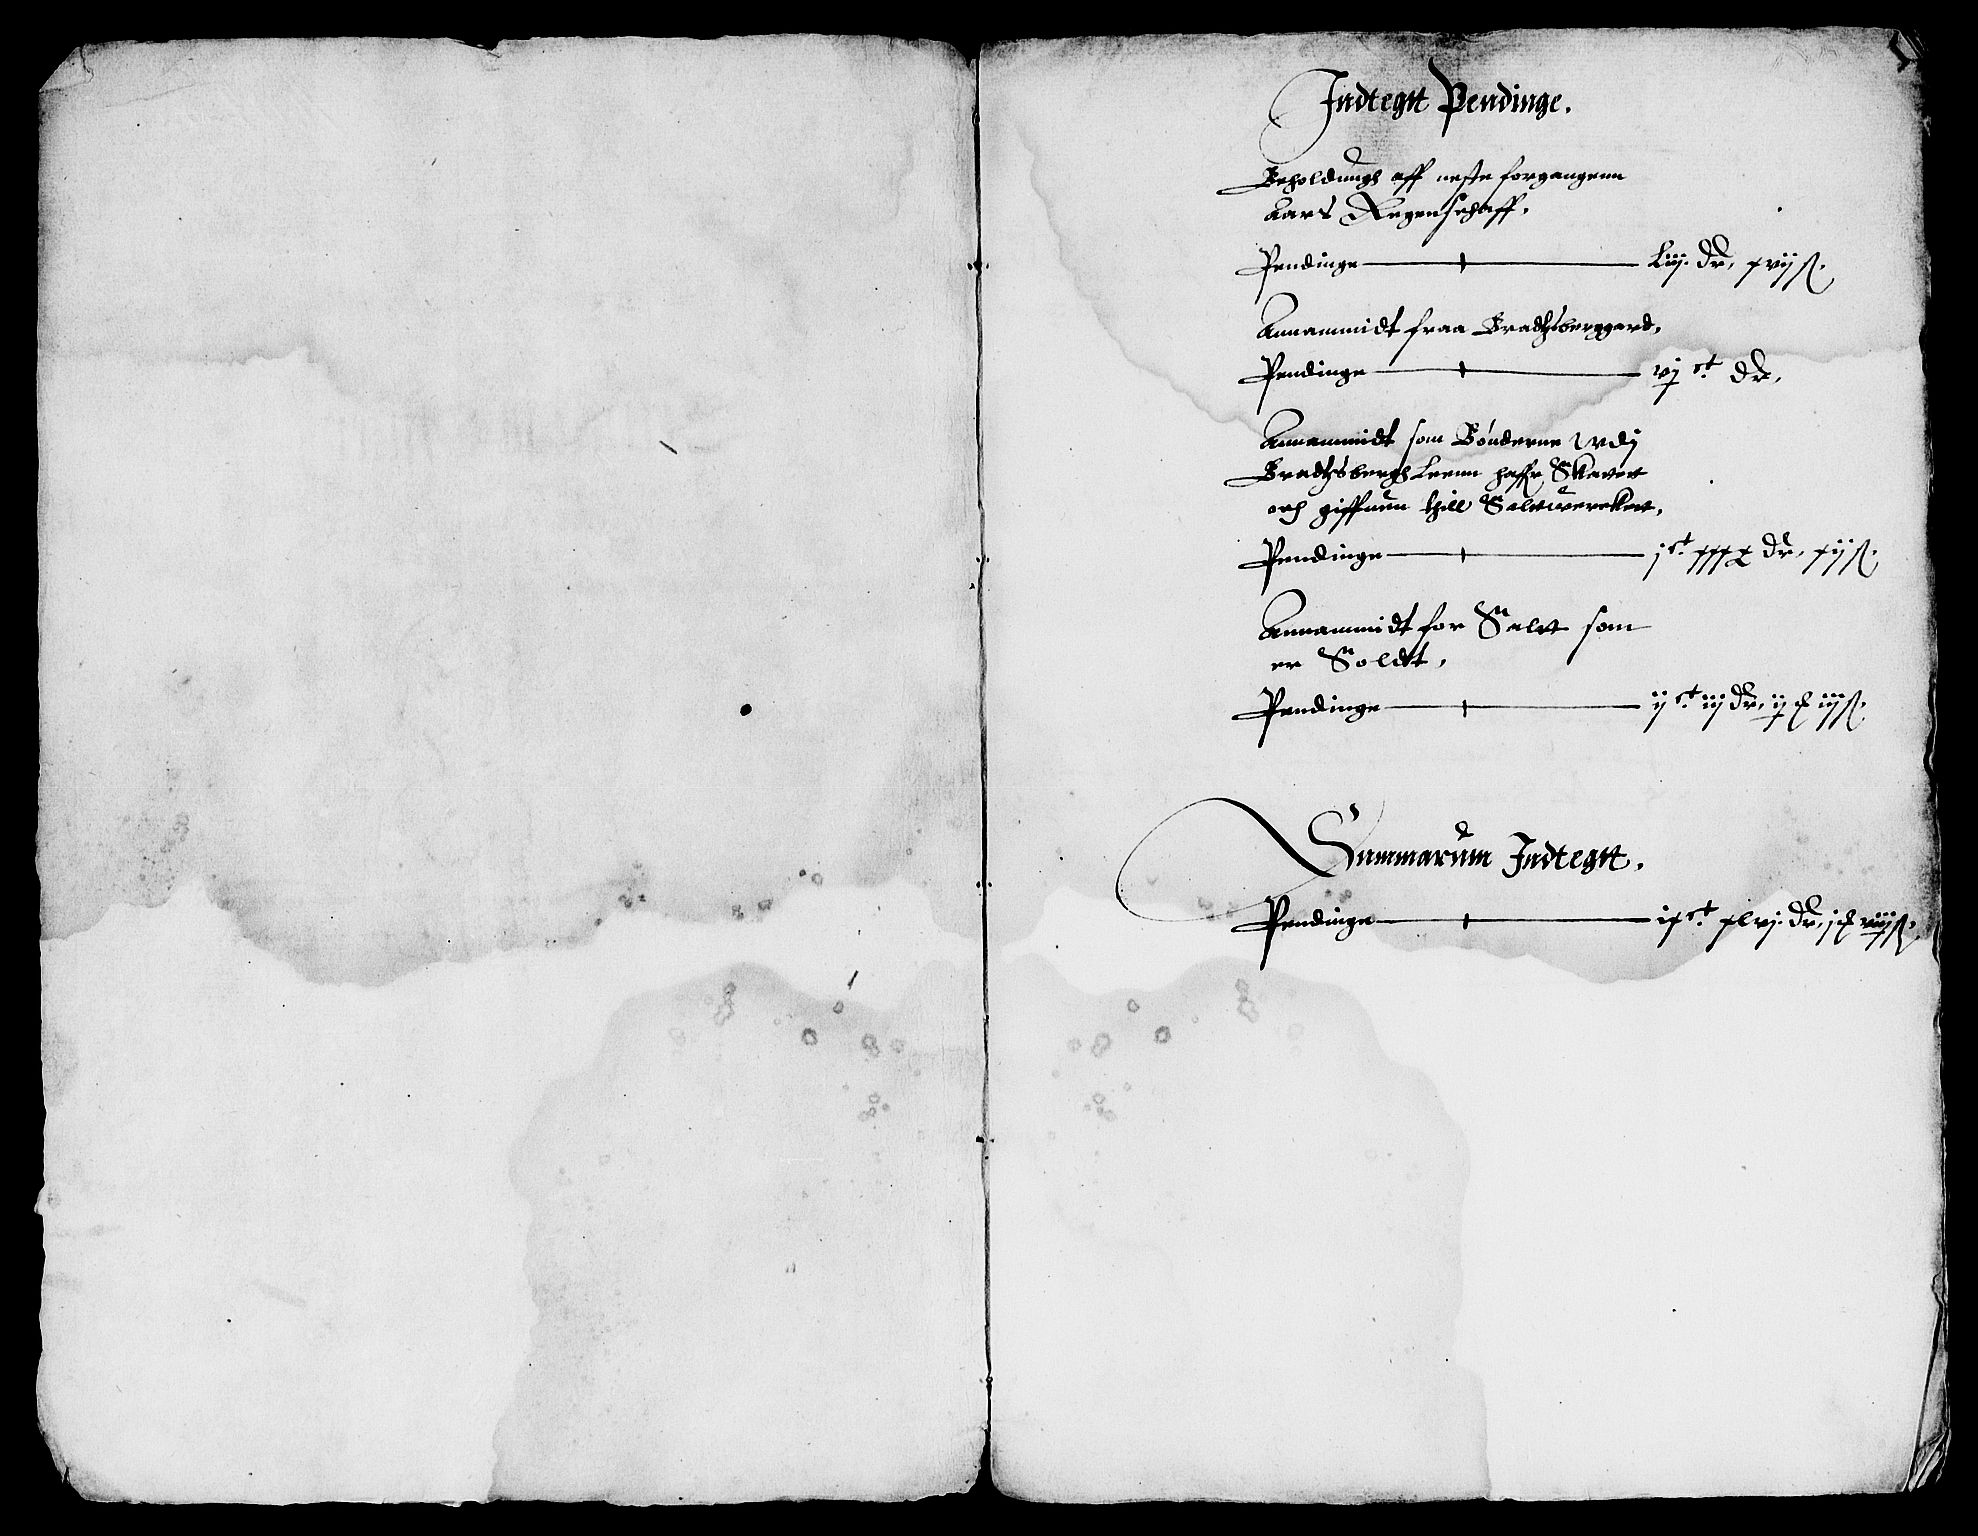 Indtegtt Pendinge.
Beholdungh aff neste forgangenn
Aars Regenschaff,
Pendinge — Liij. dr, xvij ß.
Annammidt fraa Bradtzberggard,
Pendinge — vj ct dr,
Annammidt som Bønderne wdj
Bradtzbergh Leenn haffr Skavet
och giffuen thill Saltwerckett,
Pendinge — j ct. xxxx dr, xij ß.
Annammidt for Saltt som
er Soldtt,
Pendinge — ij ct. iij dr, ij iij ß.
Summarum Indtegtt.
Pendinge — ix ct. xlvj. dr, j viij ß.